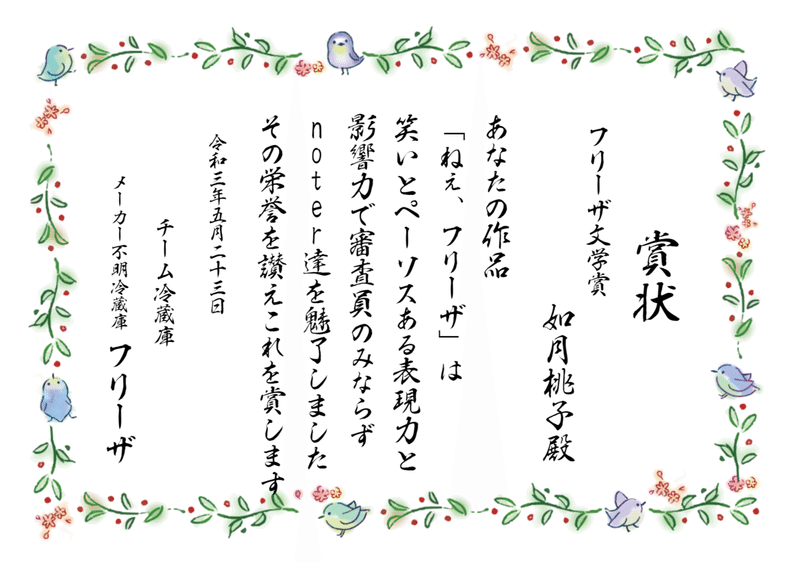 賞状
フリーザ文学賞
如月桃子殿
あなたの作品
「ねぇ、フリーザ」は
笑いとペーソスある表現力と
影響力で審査員のみならず
noter達を魅了しました
その栄誉を讃えこれを賞します
令和三年五月二十三日
チーム冷蔵庫
メーカー不明冷蔵庫 フリーザ